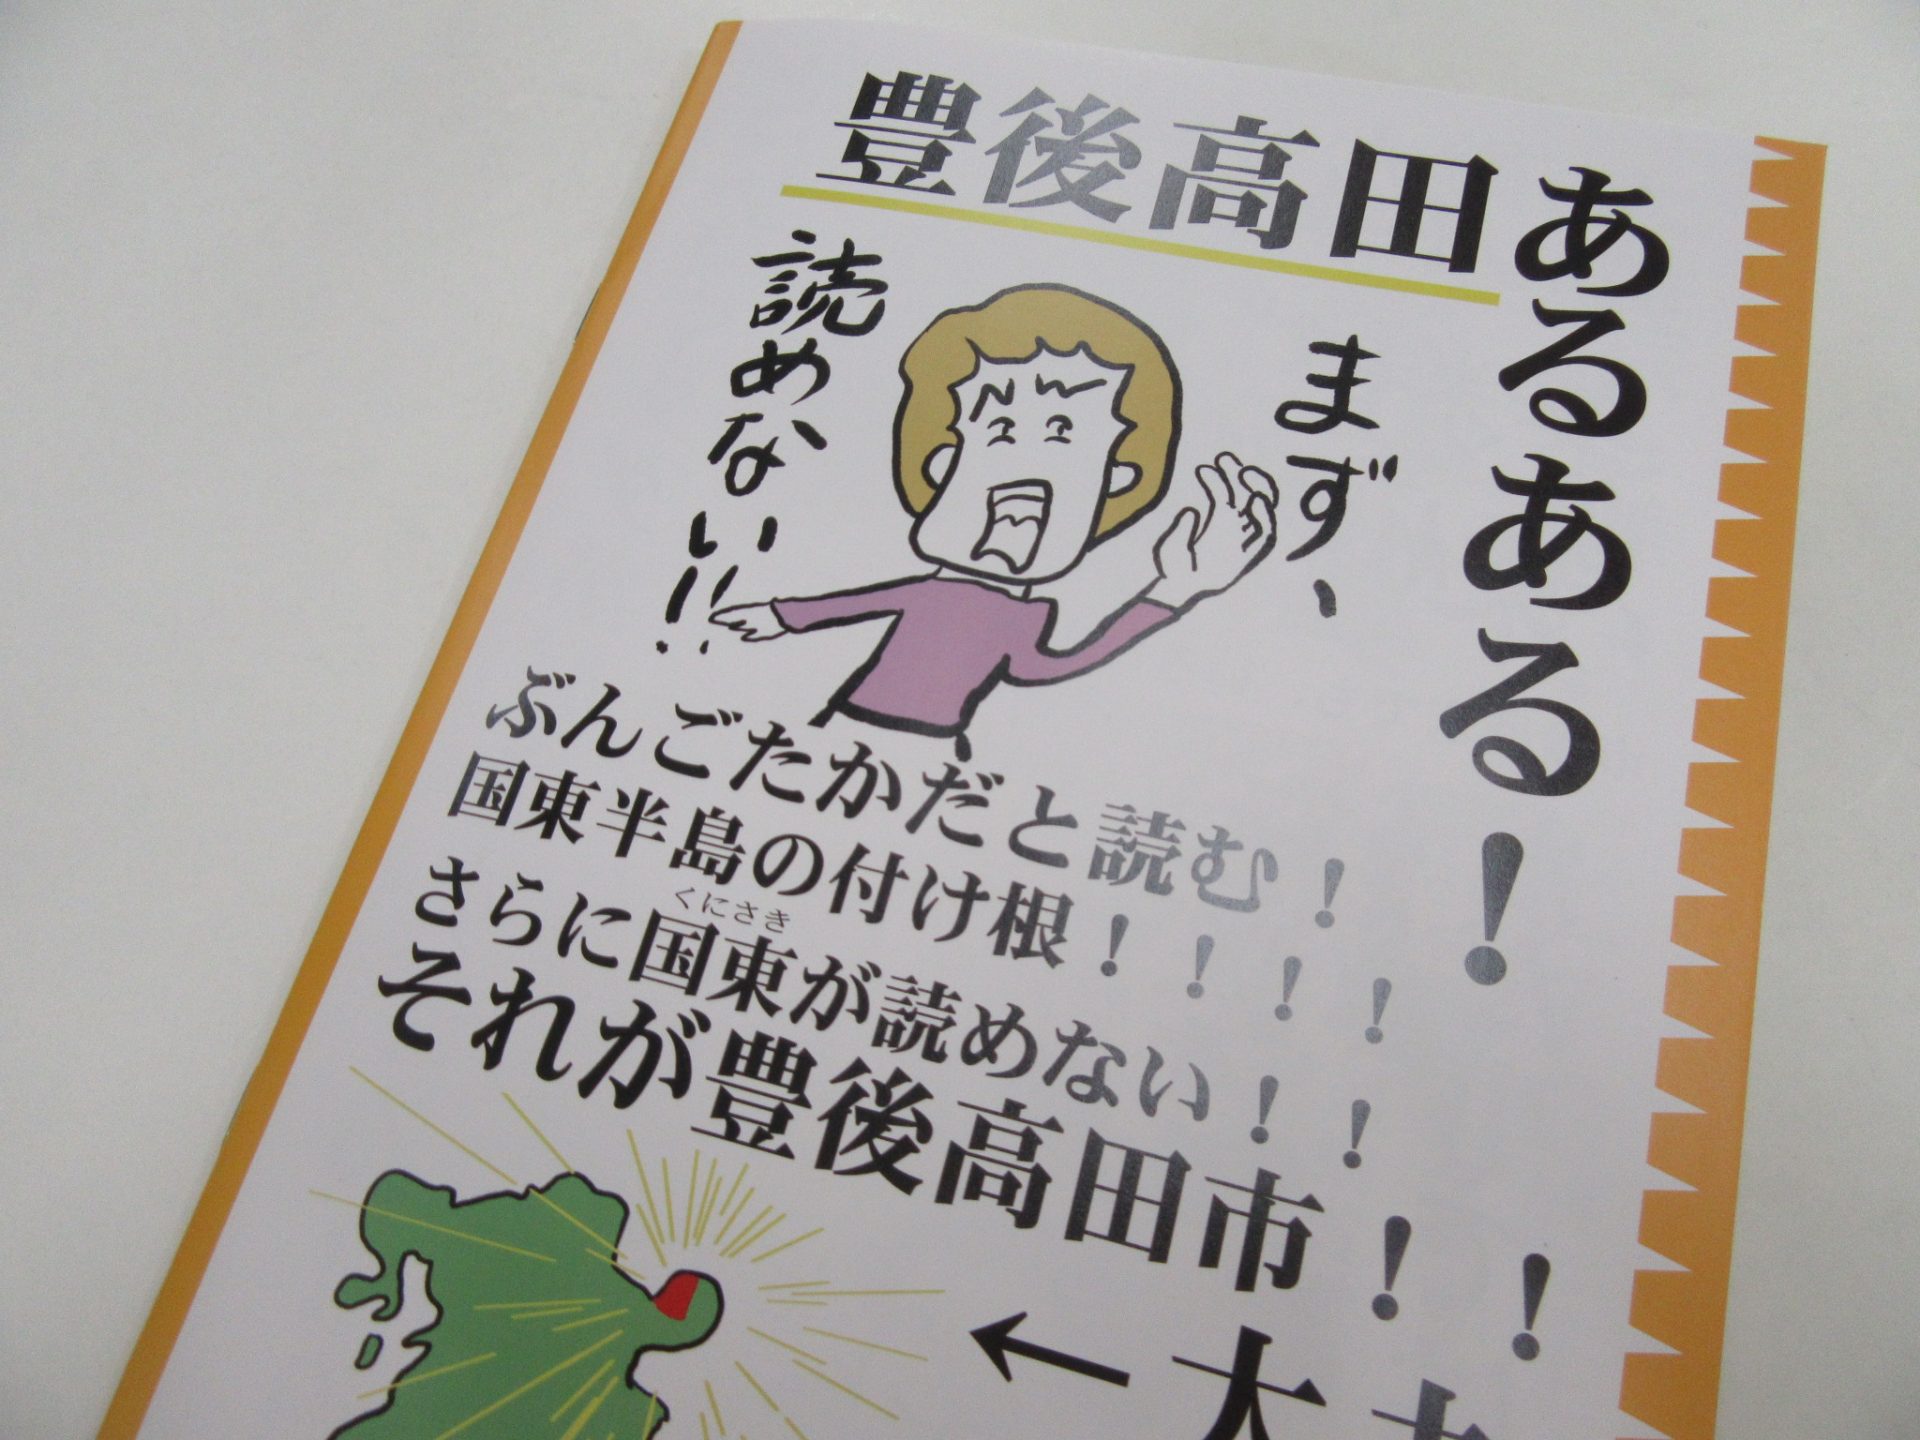 豊後高田あるある！
まず、
読めない!!
ぶんごたかだと読む！
国東半島の付け根！！！！
くにさき
さらに国東が読めない！！
それが豊後高田市！！
←大